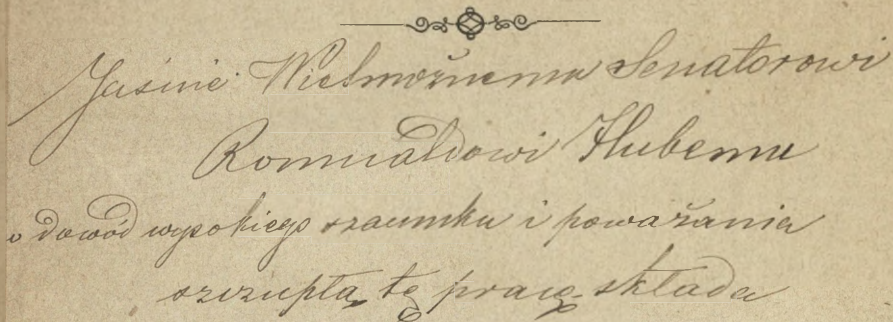 Jaśnie Wielmożnemu Senatorowi
Romualdowi Hubemu
w dowód wysokiego szacunku i poważania
szczupłą tę pracę składa